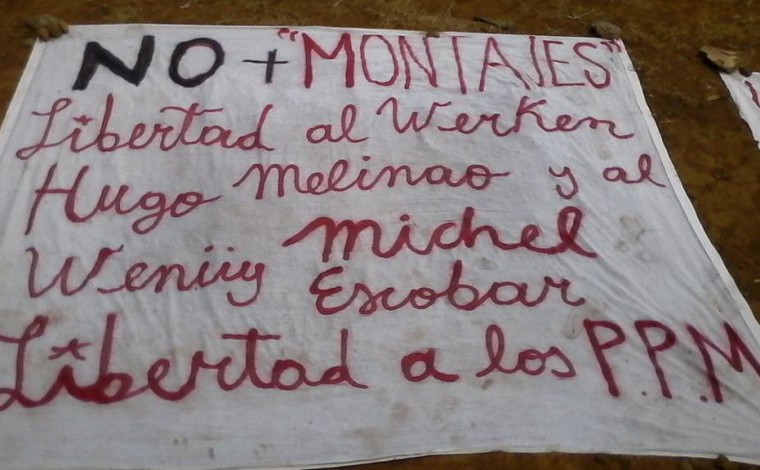 NO + "MONTAJES"
Libertad al Werken
Hugo Melinao y al
Weniiy Michel
Escobar
Libertad a los P.P.M